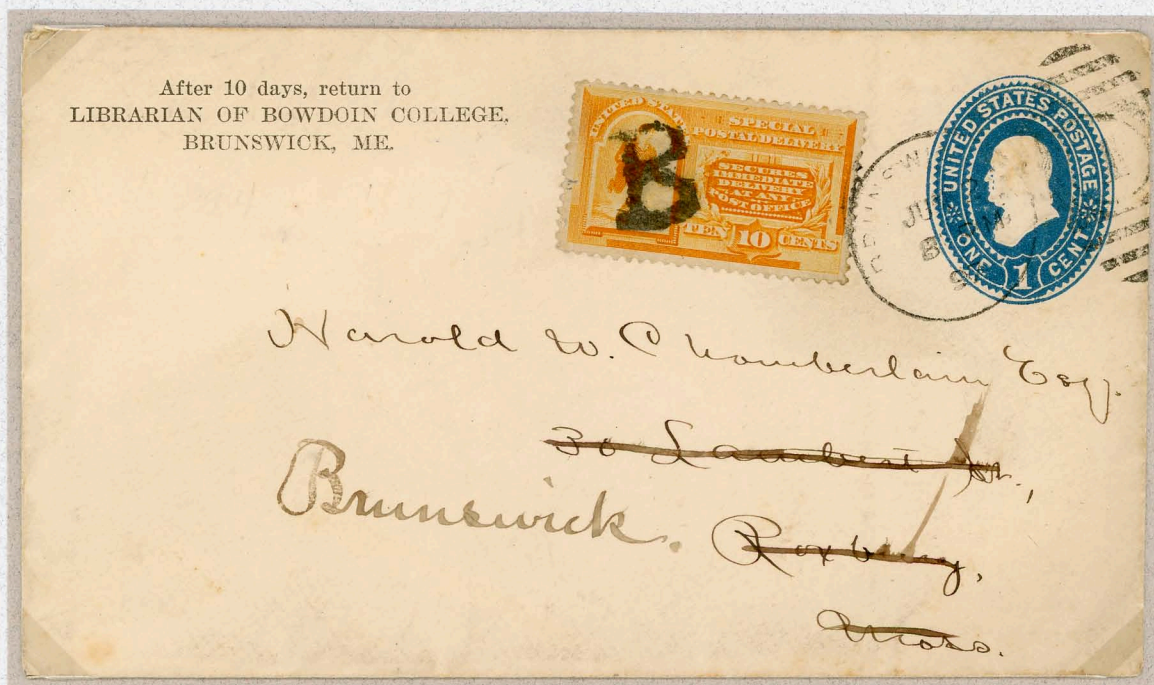 After 10 days, return to
LIBRARIAN OF BOWDOIN COLLEGE,
BRUNSWICK, ME.
UNITED STAT
SPECIAL
POSTAL DELIVERY
SECURES
IMMEDIATE
DELIVERY
AT ANY
POST OFFICE
TEN 10 CENTS
B
UNITED STATES POSTAGE
ONE 1 CENT
Harold W. Chamberlain Esq.
30 Lambert St.,
Brunswick. Roxbury,
Mass.